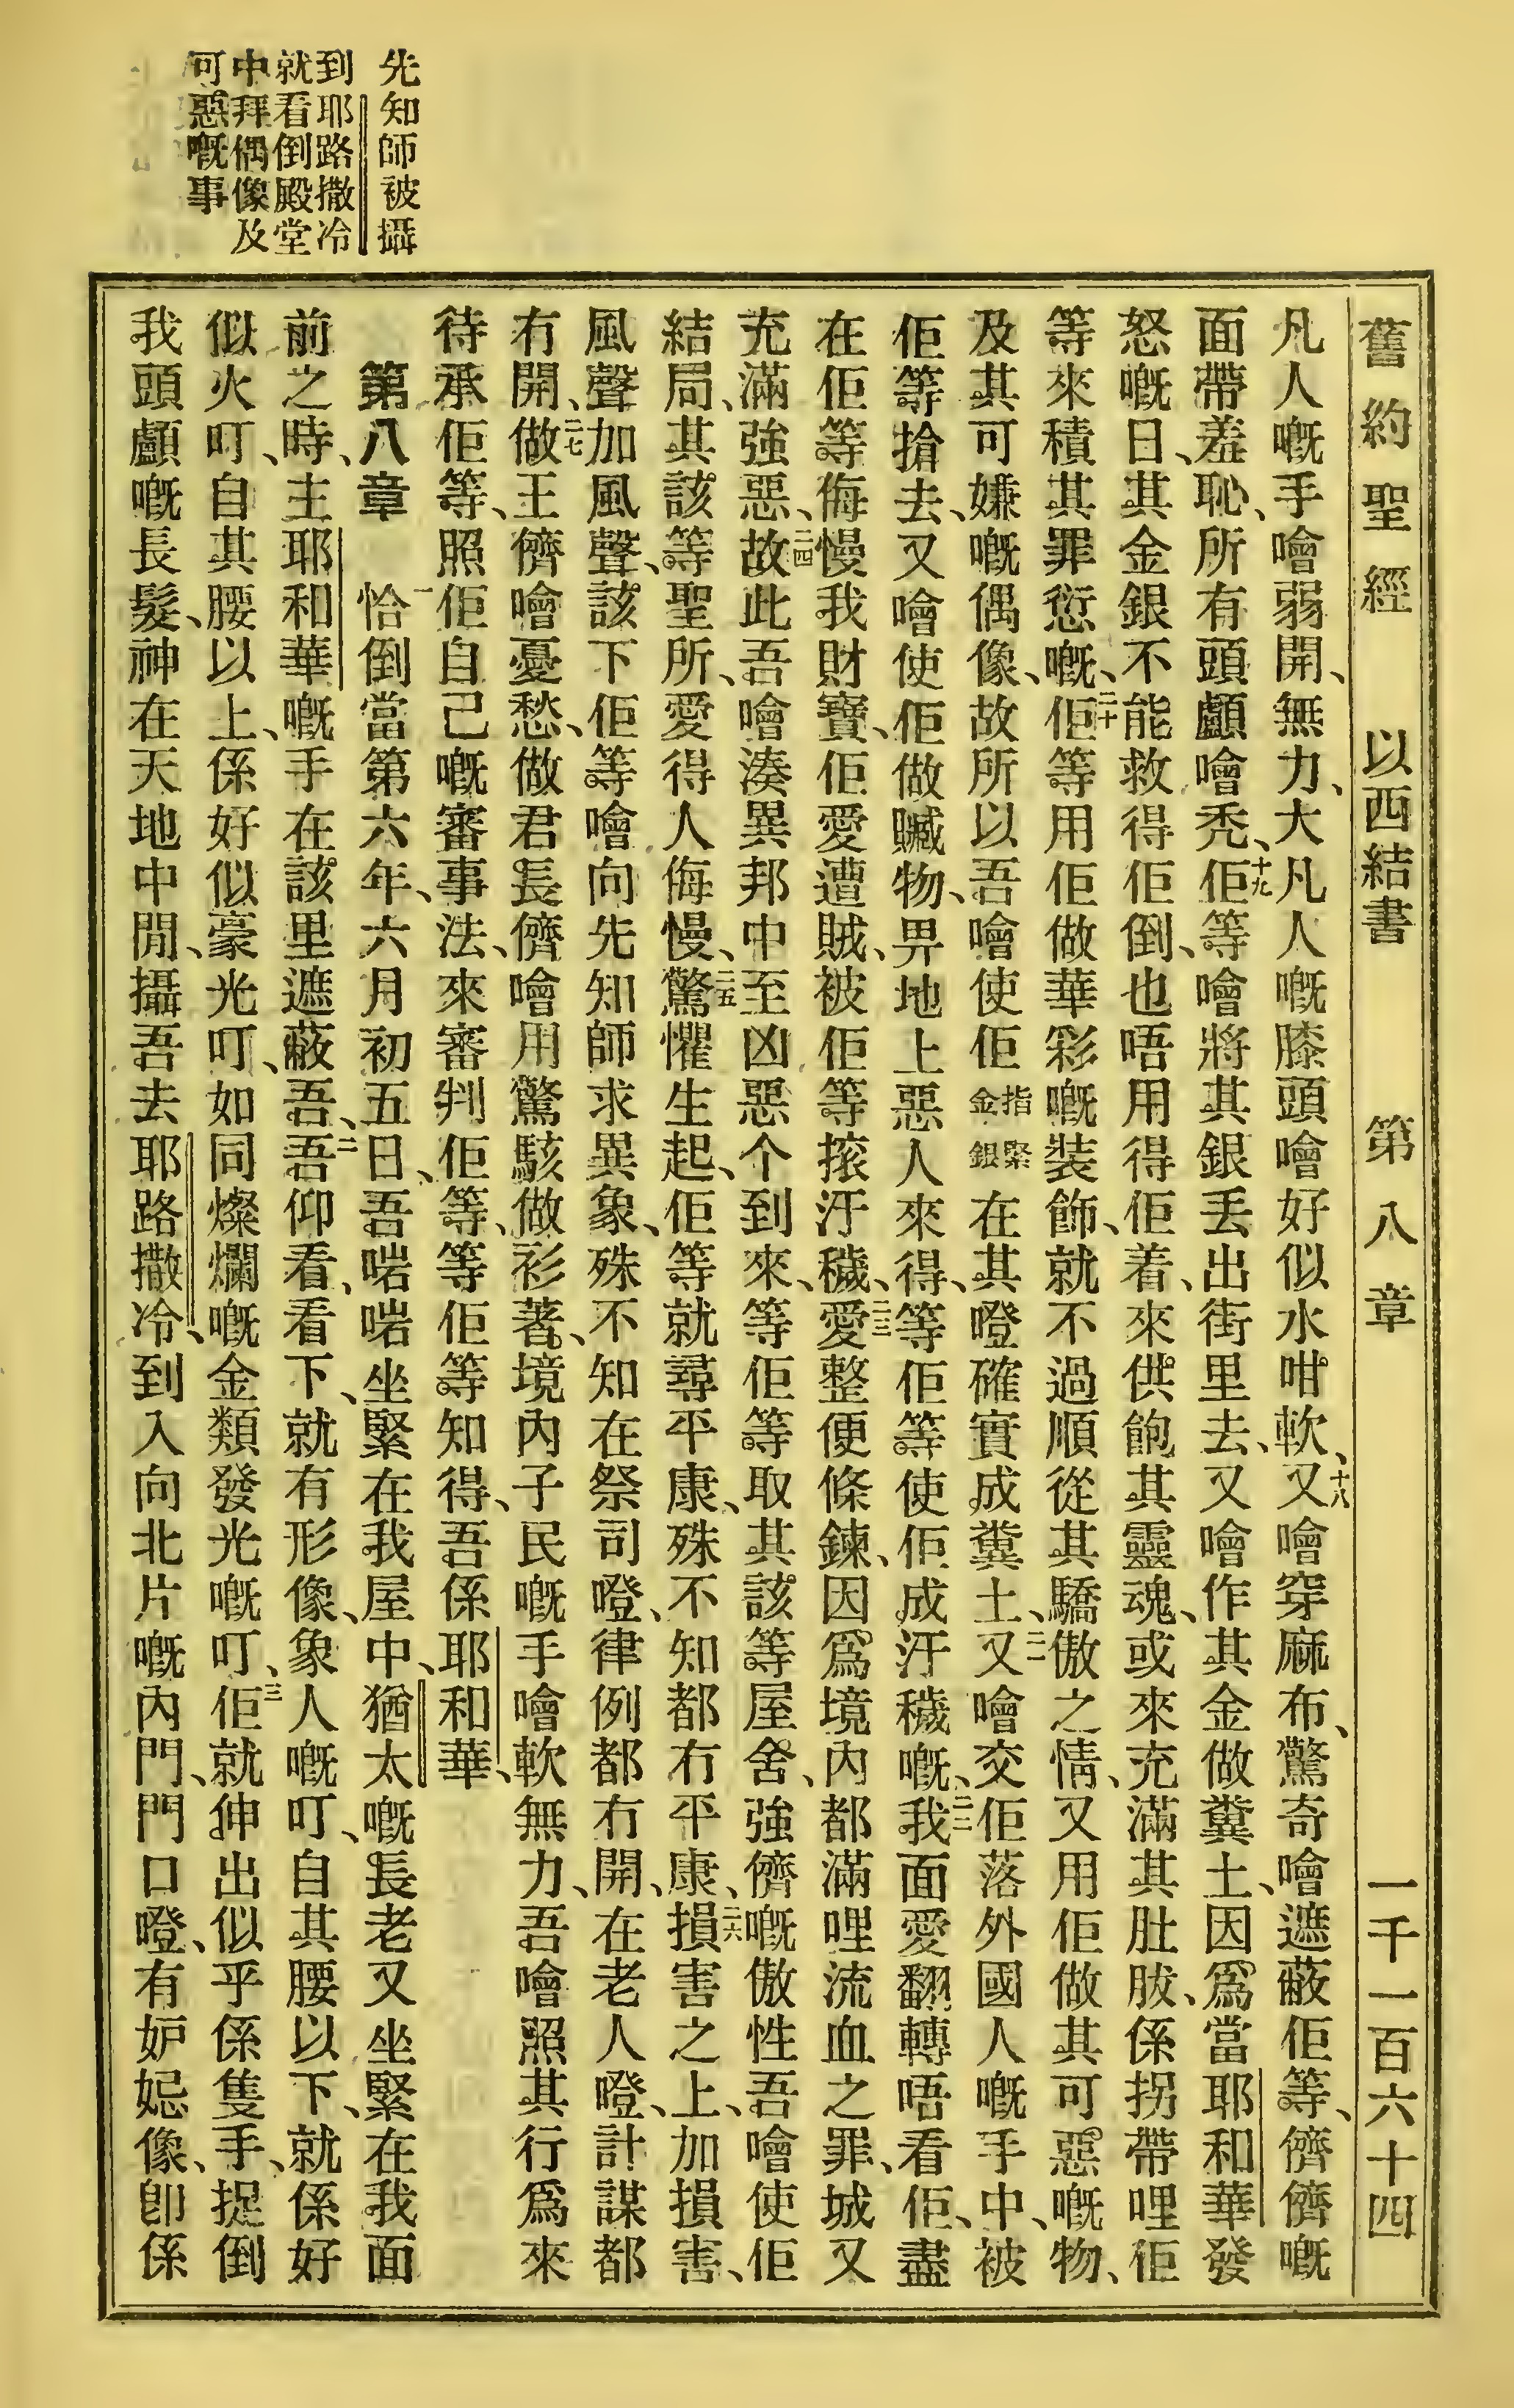 舊約聖經　以西結書　第八章　一千一百六十四
先知師被攝
到耶路撒冷
就看倒殿堂
中拜偶像及
可惡嘅事
凡人嘅手噲弱開、無力、大凡人嘅膝頭噲好似水咁軟、十八又噲穿麻布、驚奇噲遮蔽佢等、儕儕嘅
面帶羞恥、所有頭顱噲禿、十九佢等噲將其銀丢出街里去、又噲作其金做糞土、因爲當耶和華發
怒嘅日、其金銀不能救得佢倒、也唔用得佢着、來供飽其靈魂、或來充滿其肚胈、係拐帶哩佢
等來積其罪愆嘅、二十佢等用佢做華彩嘅装飾、就不過順從其驕傲之情、又用佢做其可惡嘅物、
及其可嫌嘅偶像、故所以吾噲使佢指緊金銀在其噔確實成糞土、二一又噲交佢落外國人嘅手中、被
佢等搶去、又噲使佢做贓物、畀地上惡人來得、等佢等使佢成汙穢嘅、二二我面愛翻轉唔看佢、盡
在佢等侮慢我財寶、佢愛遭賊、被佢等㨰汙穢、二三愛整便條鍊、因爲境內都滿哩流血之罪、城又
充滿強惡、二四故此吾噲湊異邦中至凶惡个到來、等佢等取其該等屋舍、強儕嘅傲性吾噲使佢
結局、其該等聖所、愛得人侮慢、二五驚懼生起、佢等就尋平康、殊不知都冇平康、二六損害之上、加損害、
風聲加風聲、該下佢等噲向先知師求異象、殊不知在祭司噔、律例都冇開、在老人噔、計謀都
冇開、二七做王儕噲憂愁、做君長儕噲用驚駭做衫著、境內子民嘅手噲軟無力、吾噲照其行爲來
待承佢等、照佢自己嘅審事法、來審判佢等、等佢等知得、吾係耶和華、
第八章　一恰倒當第六年、六月初五日、吾啱啱坐緊在我屋中、猶太嘅長老又坐緊在我面
前之時、主耶和華嘅手在該里遮蔽吾、二吾仰看、看下、就有形像、象人嘅叮、自其腰以下、就係好
似火叮、自其腰以上、係好似豪光叮、如同燦爛嘅金類發光嘅叮、三佢就伸出似乎係隻手、捉倒
我頭顱嘅長髮、神在天地中閒、攝吾去耶路撒冷、到入向北片嘅內門、門口噔、有妒忌像、卽係